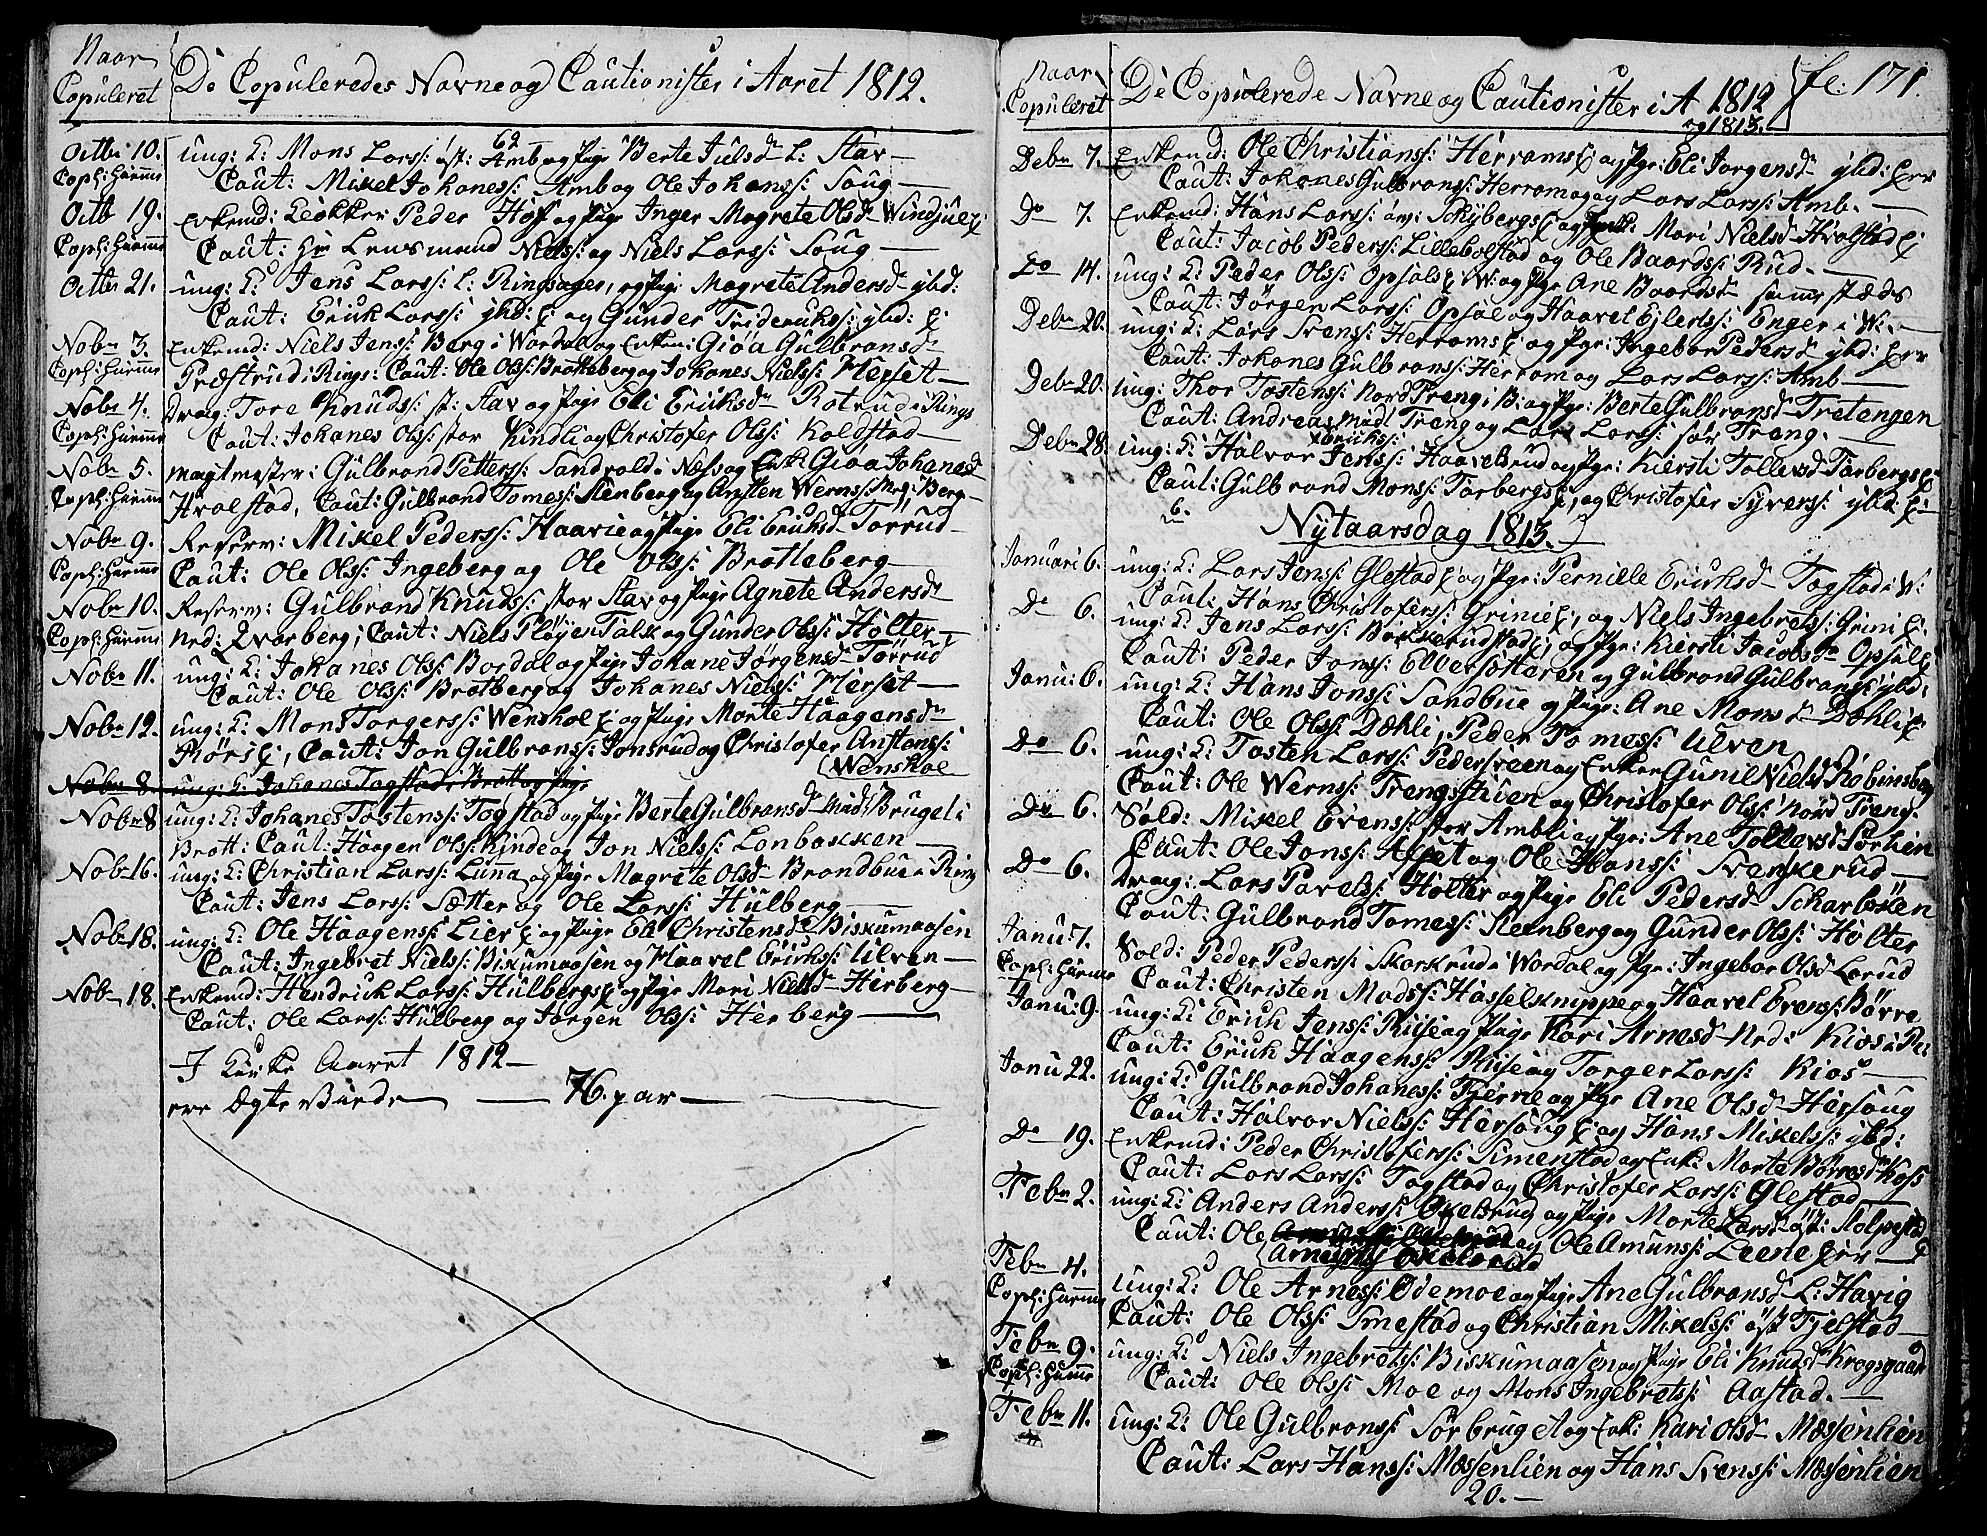 Naar
Copuleret
De Copuleredes Navne og Cautionister i Aaret 1812.
Octbr 10. ung: K: Mons Lars: øst: Amb og Pige Berte Julsd L: Stav
62
Coph: hiemme Caut: Mikel Johanes: Amb og Ole Johans: Soug
Octb 19. Enkemd: Klokker Peder Hof og Pige Inger Magrete Olsd Windjue
Coph: hiemme Caut: Hr Lensmand Niels: og Niels Lars: Soug
Octbr 21. ung: K: Jens Lars: L: Ringsager, og Pige Magrete Andersd ibd:
Caut: Erik Lars: ibd: og Gunder Frideriks: ibd:
Nobr 3. Enkemd: Niels Jens: Berg i Wardal og Enken: Giøa Gulbransd
Coph: hiemme Præstrud i Rings: Caut: Ole Ols: Brotteberg og Johanes Niels: Merset
Nobr 4. Drag: Tore Knuds: st: Stav og Pige Eli Eriksd Rotrud i Rings
Coph: hiemme Caut: Johanes Ols: stor Kindli og Christofer Ols: Koldstad
Nobr 5. Magtmester: Gulbrand Petters: Sandvold i Næs og Enk: Giøa Johanesd
Coph: hiemme Hvalstad, Caut: Gulbrand Tomes: Stenberg og Ansten Werns: Berg
Nobr 9. Reserv: Mikel Peders: Haavie og Pige Eli Eriksd Torrud
Coph: hiemme Caut: Ole Ols: Ingeberg og Ole Ols: Brotteberg
Nobr 10. Reserv: Gulbrand Knuds: stor Stav og Pige Agnete Andersd
Coph: hiemme Ned: Qvarberg; Caut: Niels Pløyen Falk og Gunder Ols: Holter
Nobr 11. ung: K: Johanes Ols: Bordal og Pige Johane Jørgensd Torrud
Caut: Ole Ols: Brotberg og Johanes Niels: Merset
Nobr 12. ung: K: Mons Torgers: Wenshol og Pige Marte Haagensd
Rørs, Caut: Jon Gulbrans: Jonsrud og Christofer Anstens:
Wenshoe
Nobr 8 ung: K: Johanes Togstad i Brott og Pige
Nobr 8 ung: K: Johanes Tostens: Togstad og Pige Berte Gulbransd Brugel i
Brott: Caut: Haagen Ols: Kinde og Jon Niels: Lonbakken
Nobr 16. ung: K: Christian Lars: Lunna og Pige Magrete Olsd Brandbue i Ring
Caut: Jens Lars: Sætter og Ole Lars: Hulberg
Nobr 18. ung: K: Ole Haagens: Lier og Pige Eli Christensd Biskumaasen
Caut: Ingebret Niels: Biskumaasen og Haavel Eriks: Ulven
Nobr 18. Enkemd: Hendrick Lars: Hulbergs og Pige Mari Nielsd Herberg
Caut: Ole Lars: Hulberg og Jørgen Ols: Herberg
I Kirke Aaret 1812
ere Ægte Viede 76. par
Naar
Copuleret
De Copulerede Navne og Cautionister i A 1812
og 1813.
fc: 171.
Debr 7. Enkemd: Ole Christians: Herrom og Pge: Eli Jorgensd ibd:
Caut: Johanes Gulbrans: Herrom og Lars Lars: Amb.
Do 7. Enkemd: Hans Lars: Skybergs og Enk: Mari Nielsd Hvalstad
Caut: Jacob Peders: Lillebolstad og Ole Baards: Rud.
Do 14. ung: K: Peder Ols: Opsal W: og Pge Ane Baardsd sammestæds
Caut: Jørgen Lars: Opsal og Haavel Ejlerts: Enger i W.
Debr 20. ung: K: Lars Svens: Herrom og Pge: Ingebor Pedersd ibd:
Caut: Johanes Gulbrans: Herrom og Lars Lars: Amb
Debr 20. ung: Thor Tostens: Nord Treng i B: og Pge: Berte Gulbransd Tretengen
Caut: Andreas Treng og Lars Lars: sør Treng.
Debr 28. ung: K: Halvor Jens: Haavelsrud og Pge: Kiersti Tollevsd Torbergs
Eriks:
Caut: Gulbrand Mons: Torbergs, og Christofer Syvers: ibd:
6.
Nytaarsdag 1813.
Januari 6. ung: K: Lars Jens: Glestad og Pge: Pernille Eriksd Togstad i W:
Caut: Hans Christofers: Grinie, og Niels Ingebrets: Grini
Do 6. ung: K: Jens Lars: Birkerudstad, og Pge: Kiersti Jacobsd Opsal
Caut: Peder Jons: Elversætteren og Gulbrand Gulbrans: ibd:
Janu: 6. ung: K: Hans Jons: Sandbue og Pge: Ane Monsd Dæhli
Caut: Ole Ols: Dæhli, Peder Tomes: Ulven
Do 6. ung: K: Tosten Lars: Pedersveen og Enken Gunil Nielsd Robinsberg
Caut: Ole Werns: Trengsstuen og Christofer Ols: Nord Treng.
Do 6. Sold: Mikel Evens: stor Ambli og Pge: Ane Tollevsd Sørlien
Caut: Ole Jons: Alset og Ole Hans: Svenkerud
Do 6. Drag: Lars Pavels: Holter og Pige Eli Pedersd Scharbøen
Caut: Gulbrand Tomes: Stenberg og Gunder Ols: Holter
Janu: 7. Sold: Peder Peders: Skarkrud i Wardal og Pge: Ingebor Olsd Lorud
Coph: hiemme Caut: Christen Mads: Hasselknippe og Haavel Evens: Børre
Janu: 9. ung: K: Erich Jens: Riise og Pige Kari Arnesd Ned: Kios i Rei
Caut: Erich Haagens: Riise og Torger Lars: Kios
Janu 22. ung: K: Gulbrand Johanes: Tjerne og Pge Ane Olsd Hersoug
Caut: Halvor Niels: Hersoug og Hans Mikels: ibd:
Do 19. Enkemd: Peder Christofers: Simenstad og Enk: Marte Børresd Koss
Caut: Lars Lars: Togstad og Christofer Lars: Glestad
Febr 2. ung: K: Anders Anders: Oxelsrud og Pige Marte Larsd øst: Stolpestad
Caut: Ole og Ole Amuns: Leene
Arnes: Oxelsrud
Febr 4. ung: K: Ole Arnes: Ødemoe og Pige Ane Gulbransd L: Havig
Coph: hiemme Caut: Ole Ols: Smestad og Christian Mikels: øst Fjelstad
Febr 9. ung: K: Niels Ingebrets: Biskumaasen og Pige Eli Knudsd Krogsgaard
Coph: hiemme Caut: Ole Ols: Moe og Mons Ingebrets: Aastad.
Febr 11. ung: K: Ole Gulbrans: Sørbruget og Enk: Kari Olsd Mæssenlien
Caut: Lars Hans: Mæssenlien og Hans Svens: Mæssenlien
20.